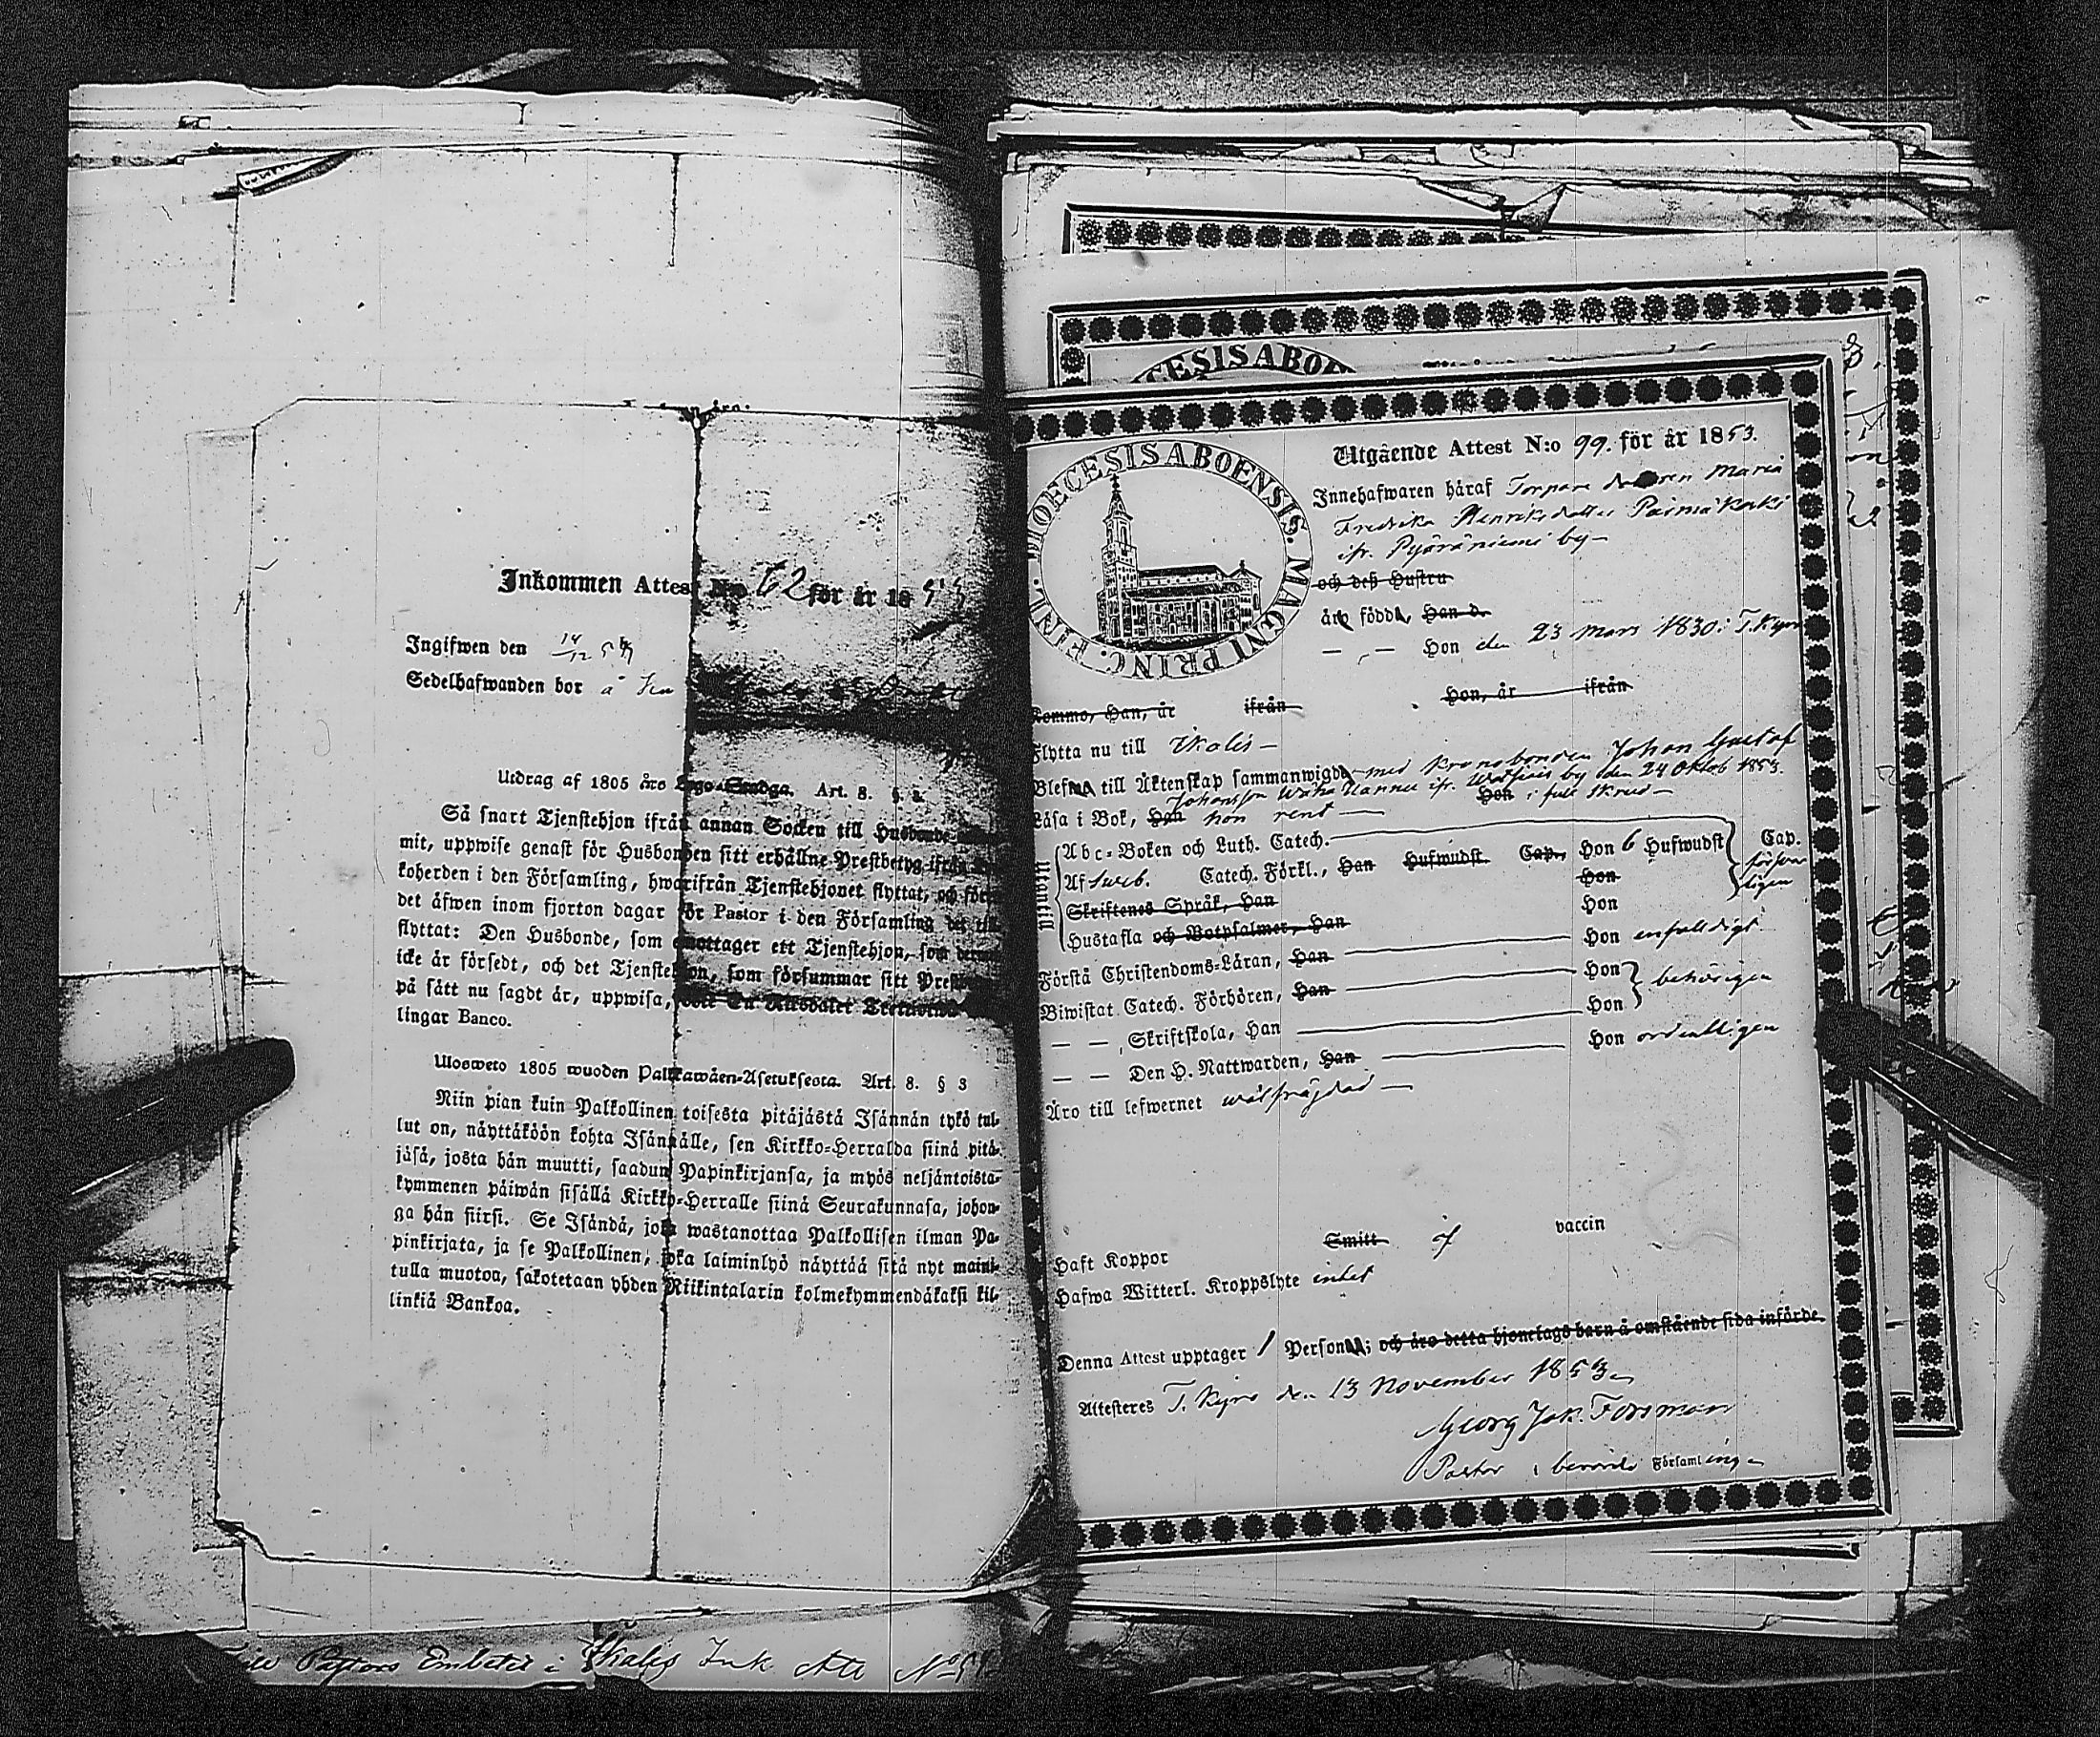 Inkommen Attest N:o 62 för år 1853
Ingifwen den 14/12 53
Sedelhafwanden bor å
Utdrag af 1805 års Lego-Stadga. Art. 8. §. 3.
Så snart Tjenstehjon ifrån annan Socken till Husbonde
mit, uppwise genast för Husbonden sitt erhållne Prestbetyg ifrån
koherden i den Församling, hwarifrån Tjenstehjonet flyttat, och före
det äfwen inom fjorton dagar för Pastor i den Församling det till
flyttat: Den Husbonde, som emottager ett Tjenstehjon, som dermed
icke är försedt, och det Tjenstehjon, som försummar sitt Prest
på sätt nu sagdt är, uppwisa, böte En Riksdaler Trettiotwå
lingar Banco.
Ulosweto 1805 wuoden Palkkawäen-Asetuksesta. Art. 8. § 3
Niin pian kuin Palkollinen toisesta pitäjästä Isännän tykö tul-
lut on, näyttäköön kohta Isännälle, sen Kirkko-Herralda siinä pitä-
jäsä, josta hän muutti, saadun Papinkirjansa, ja myös neljäntoista-
kymmenen päiwän sisällä Kirkko-Herralle siinä Seurakunnasa, johon-
ga hän siirsi. Se Isändä, joka wastanottaa Palkollisen ilman Pa-
pinkirjata, ja se Palkollinen, joka laiminlyö näyttää sitä nyt maini-
tulla muotoa, sakotetaan yhden Riikintalarin kolmekymmendäkaksi kil-
linkiä Bankoa.
Pastors Embetet i Ikalis Ink. Att. No
DIOECESIS ABOENSIS. MAGNI PRINC. FINL.
Utgående Attest N:o 99. för år 1853.
Innehafwaren häraf Torpare dottren Maria
Fredrika Henriksdotter Paimäkoski
ifr. Pyöräniemi by
och deß Hustru
äro födda, Han d.
— „ — Hon den 23 Mars 1830 i T. Kyro
Komma, Han, år ifrån Hon, år ifrån
Flytta nu till Ikalis
Blefna till Äktenskap sammanwigde med Kronobonden Johan Gustaf
Johansson ifr. by den 24 Oktob 1853.
Läsa i Bok, Han hon rent Hon i full skrud
Utantill
Abc-Boken och Luth. Catech.
Af Sweb. Catech. Förkl., Han Hufwudst. Cap., Hon 6 Hufwudst Cap.
Hon
Skriftenes Språk, Han Hon
Hustafla och Botpsalmer, Han
Förstå Christendoms-Läran, Han Hon enfaldigt
Biwistat Catech. Förhören, Han Hon behörigen
— — Skriftskola, Han Hon
— — Den H. Nattwarden, Han Hon ordentligen
Äro till lefwernet wälfräjdad
Haft Koppor Smitt af vaccin
Hafwa Witterl. Kroppslyte intet
Denna Attest upptager 1 Person; och äro detta hjonelags barn å omstående sida införde.
Attesteres T. Kyro den 13 November 1853
Georg Jak. Forsman
Pastor i berörde Församling